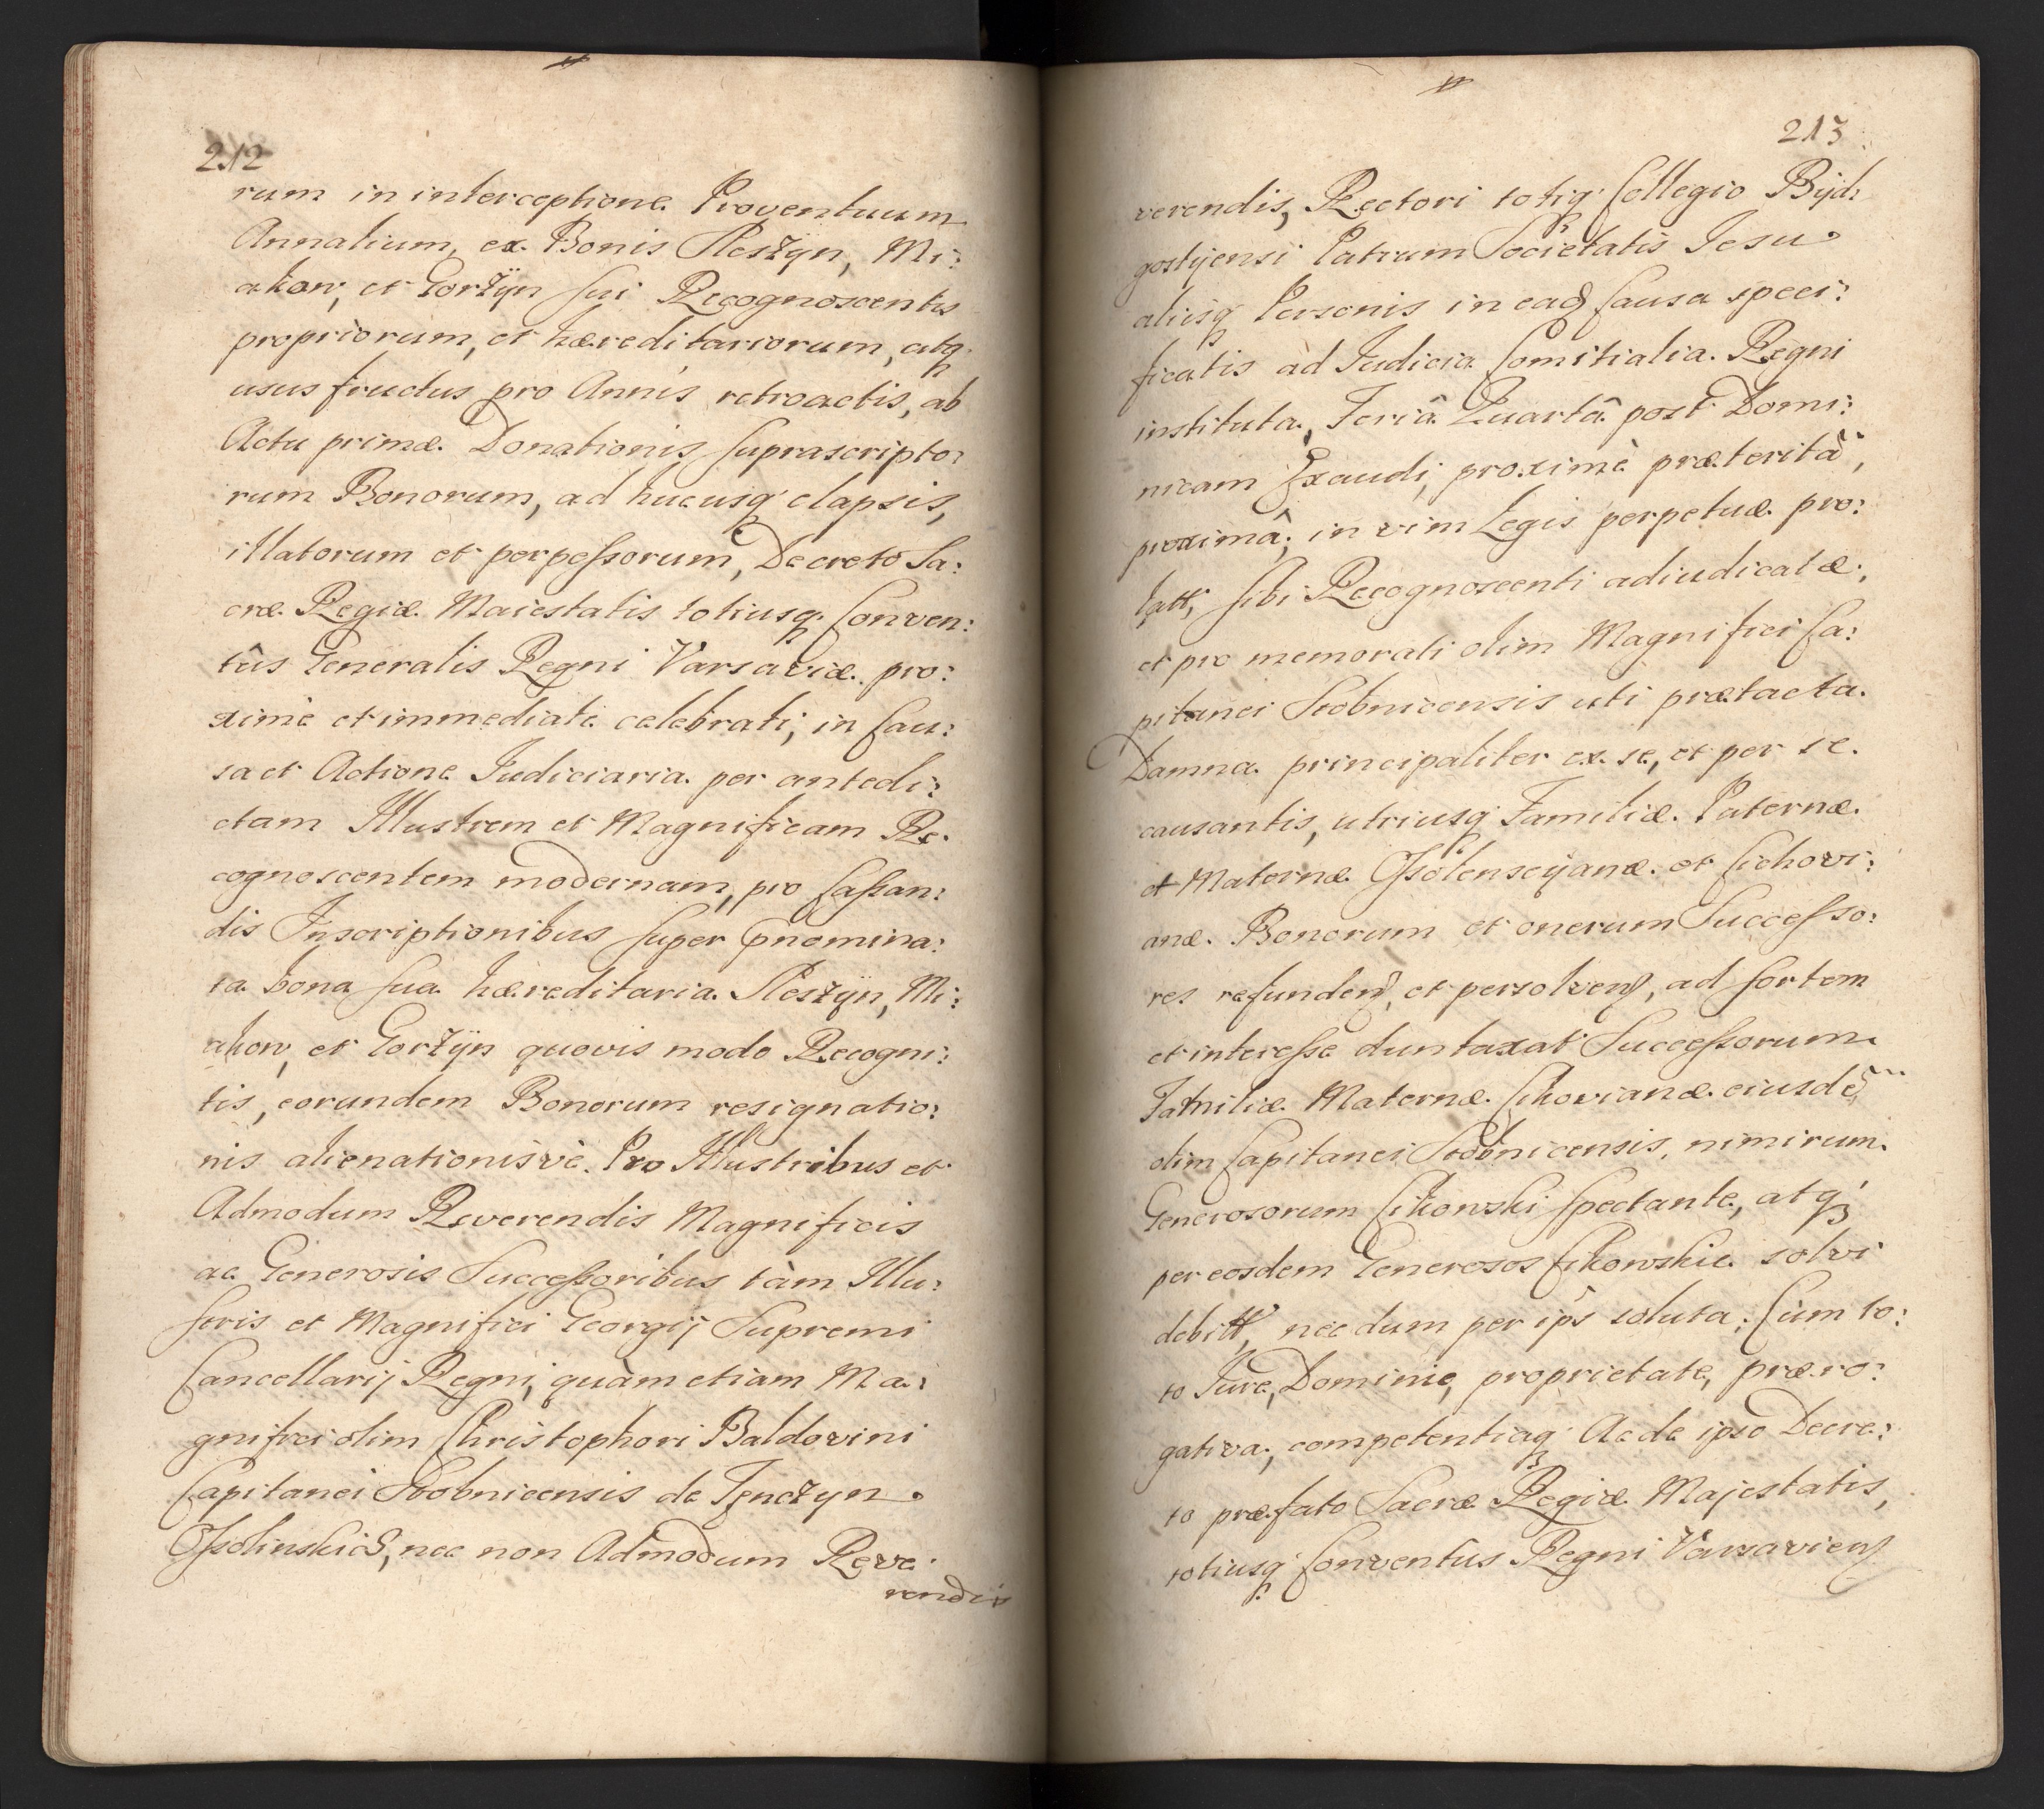 212
rum in interceptione Proventuum
Annalium, ex Bonis Pleszÿn, Mi:
akow, et Gorżÿn sui Recognoscentis
propriorum, et hæreditariorum, atq
usus fructus pro Annis retroactis, ab
Actu primæ Donationis suprascripto:
rum Bonorum, ad hucusq elapsis,
illatorum et perpessorum, Decreto Sa:
cræ Regiæ Maiestatis totiusq Conven:
tûs Generalis Regni Varsaviæ pro:
ximè et immediatè celebrati; in Cau:
sa et Actione Iudiciaria per antedi:
ctam Illustrem et Magnificam Re:
cognoscentem modernam, pro cassan:
dis Inscriptionibus super pnomina:
ta bona sua hæreditaria Pleszÿn, Mi:
akow, et Gorżÿn quovis modo Recogni:
tis, eorundem Bonorum resignatio:
nis alienationisvè. Pro Illustribus et
Admodum Reverendis Magnificis
ac Generosis Successoribus tàm Illu:
stris et Magnifici Georgij Supremi
Cancellarij Regni, quàm etiam Ma:
gnifici olim Christophori Baldovini
Capitanei Stobnicensis de Tęnczyn
Ossolinskich, nec non Admodum Reve:
rendis
213
verendis, Rectori totiq Collegio Bijd:
gostijensi Patrum Societatis Iesu
aliisq Personis in ead Causa speci:
ficatis ad Iudicia Comitialia Regni
instituta, Feriâ Quartâ post Domi:
nicam Exaudi, proximè præteritâ,
proximâ; in vim Legis perpetuæ pro:
latt, sibi Recognoscenti adiudicatæ,
et pro memorati olim Magnifici Ca:
pitanei Stobnicensis uti prætacta
Damna principaliter ex se, et per se
causantis, utriusq Familiæ Paternæ
et Maternæ Ossolenscijanæ et Cichovi:
anæ Bonorum et onerum Successo:
res refunden, et persolven, ad sortem
et interesse duntaxat Successorum
Familiæ Maternæ Cikovianæ eiusdē
olim Capitanei Stobnicensis, nimirum
Generosorum Cikowski spectante, atq
per eosdem Generosos Cikowskie solvi
debitt, necdum per ips soluta; Cùm to:
to Iure, Dominio, proprietate, præro:
gativa, competentiaq Ac de ipso Decre:
to præfato Sacræ Regiæ Majestatis,
totiusq Conventûs Regni Varsavien